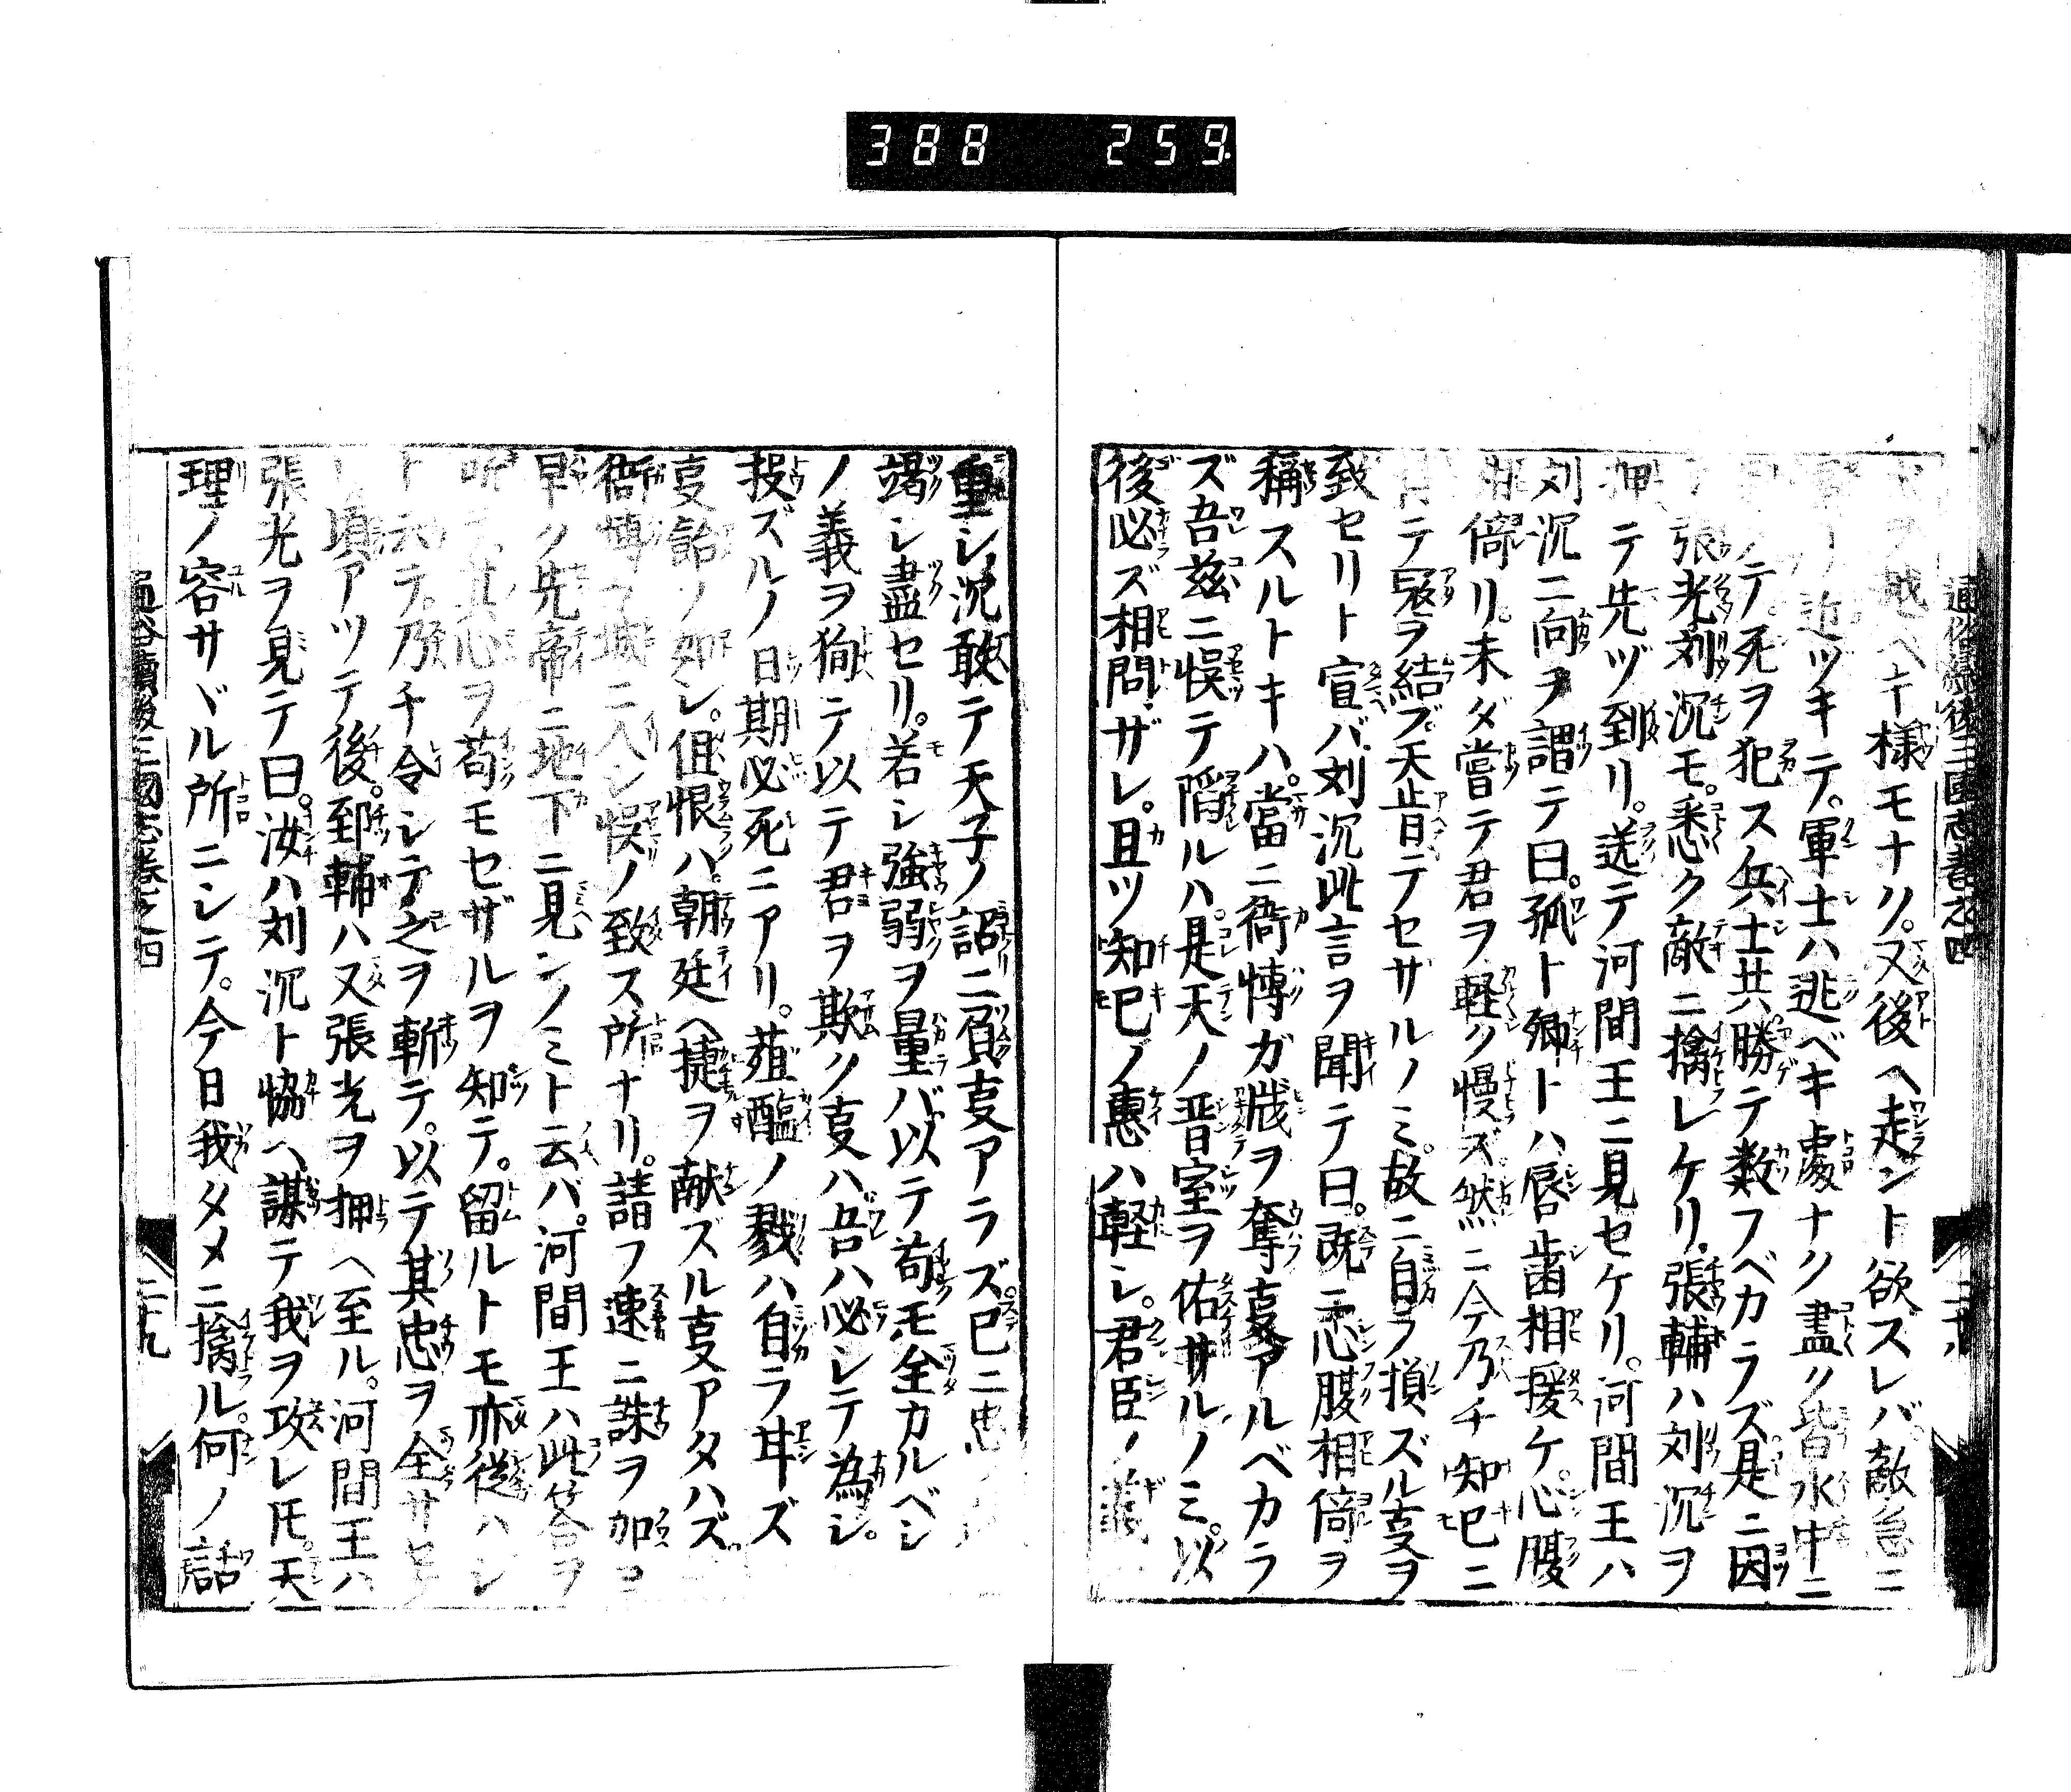 388 259
通俗續後三國志卷之四
ヲ越ベキ様モナク。又後ヘ走ント欲スレバ敵急ニ
近ヅキテ。軍士ハ逃ベキ處ナク盡ク皆水中ニ
テ死ヲ犯ス兵士共勝テ数フベカラズ是ニ因
張光刘沉モ。悉ク敵ニ擒レケリ張輔ハ刘沉ヲ
押テ先ヅ到リ。送テ河間王ニ見セケリ。河間王ハ
刘沉ニ向ヲ謂テ曰。孤ト卿トハ唇歯相援ケ。心腹
相倚リ。未ダ嘗テ君ヲ軽ク慢ズ然ニ今乃チ知己ニ
テ冤ヲ結ブ天肯テセザルノミ。故ニ自ラ損ズル叓ヲ
致セリト宣バ刘沉此言ヲ聞テ曰。既ニ心腹相倚ヲ
稱スルトキハ。當ニ衙愽ガ戕ヲ奪叓アルベカラ
ズ吾兹ニ悞テ陷ルハ。是天ノ晋室ヲ佑ザルノミ。以
後必ズ相問ザレ。且ツ知己ノ惠ハ軽シ。君臣ノ義
二十八
重シ沉敢テ天子ノ詔ニ負叓アラズ已ニ忠
竭シ盡セリ。若シ強弱ヲ量バ以テ苟モ全カルベシ
ノ義ヲ狥テ以テ君ヲ欺ク叓ハ吾ハ必シテ為シ。
投ズルノ日期必死ニアリ。葅醢ノ戮ハ自ラ甘ズ
叓飴ノ如シ。但恨ハ。朝廷ヘ捷ヲ献ズル叓アタハズ
衙愽城ニ入シ悞ノ致ス所ナリ。請フ速ニ誅ヲ加ヨ
早ク先帝ニ地下ニ見ンノミト云バ。河間王ハ此答ヲ
其心ヲ苟モセザルヲ知テ。留ルトモ亦従ハシ
ト云テ乃チ令シテ之ヲ斬テ。以テ其忠ヲ全サ
頃アツテ後。郅輔ハ又張光ヲ押ヘ至ル。河間王ハ
張光ヲ見テ曰。汝ハ刘沉ト協ヘ謀テ我ヲ攻レ𪜈。天
理ノ容サヾル所ニシテ。今日我タメニ擒ル。何ノ話
通俗續後三國志卷之四
二十九